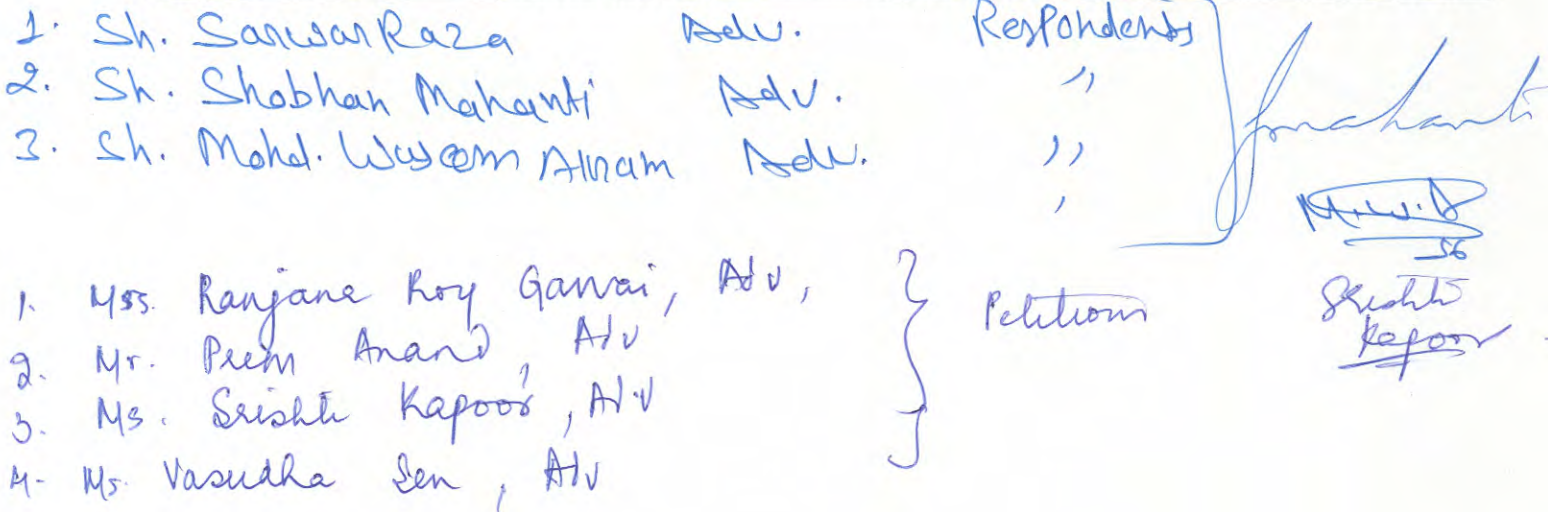 1. Sh. Sarwar Raza Adv. Respondents
2. Sh. Shobhan Mahanti Adv. "
3. Sh. Mohd. Waseem Akram Adv. "
"
Smahanti
M.W.A
1. Mrs. Ranjana Roy Gawai, Adv, Petitioner
2. Mr. Prem Anand, Adv
3. Ms. Srishti Kapoor, Adv
4. Ms. Vasudha Sen, Adv
Srishti
Kapoor